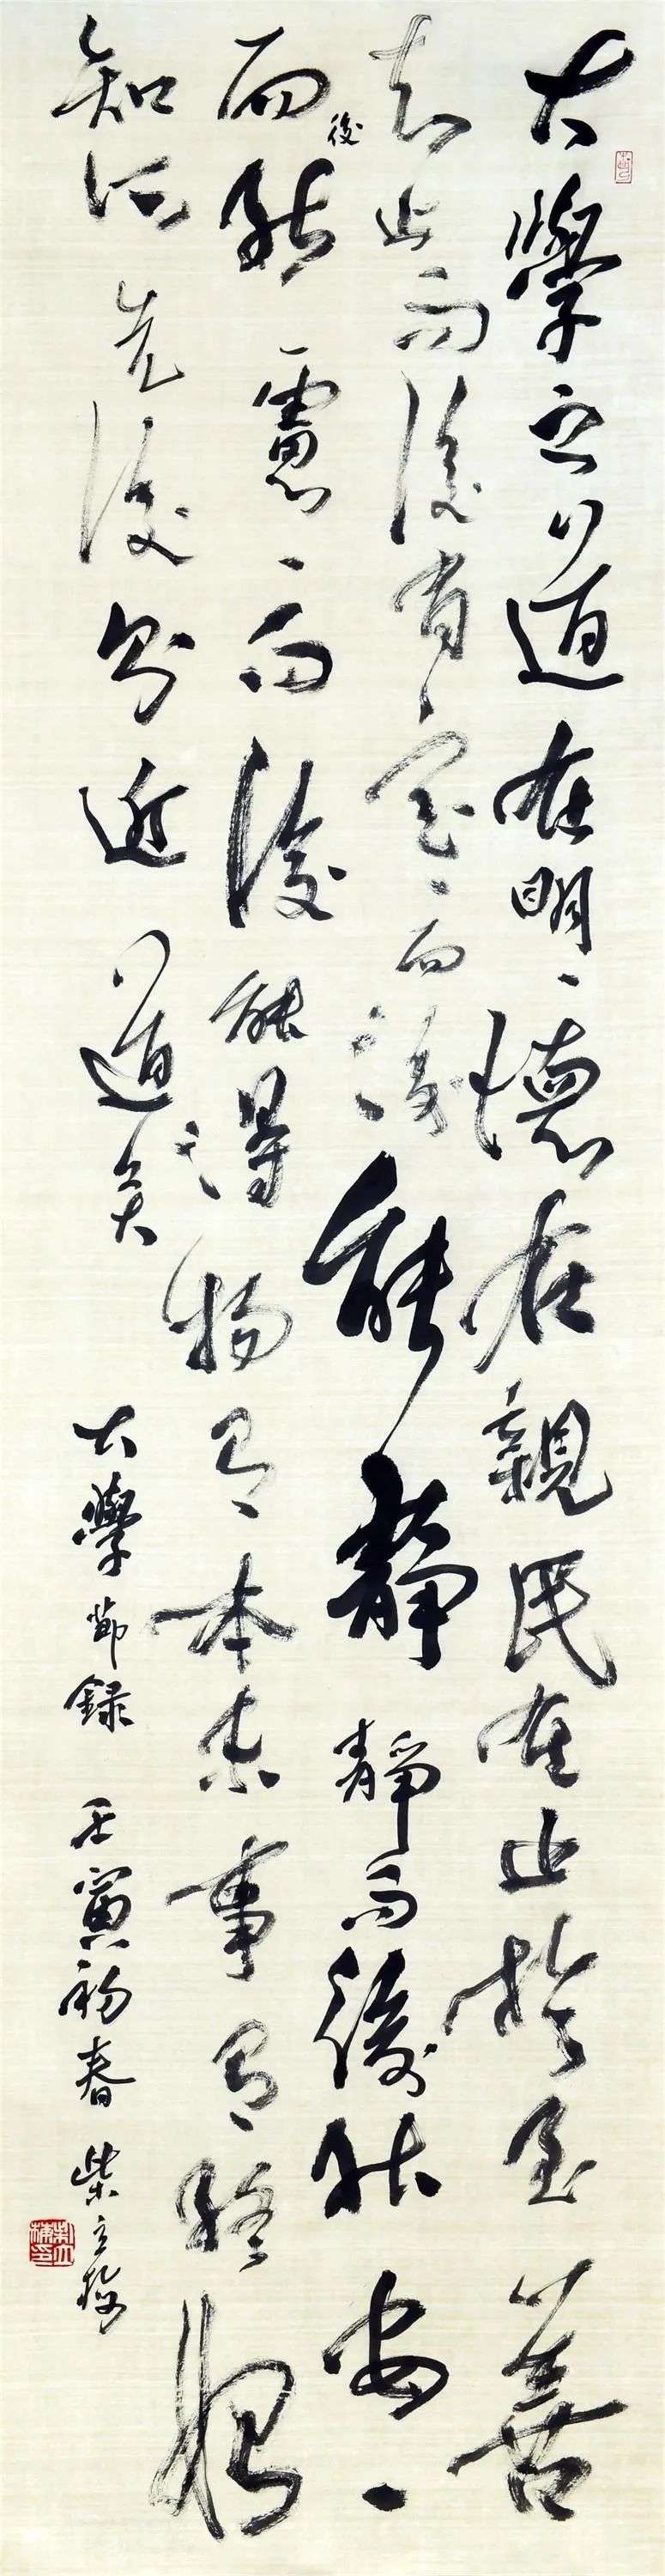 大學之道在明〻德在親民在止於至善
知止而後有定〻而後能靜靜而後能安〻
而後能慮〻而後能得物有本末事有終始
知所先後則近道矣
大學節錄 壬寅初春 柴立梅